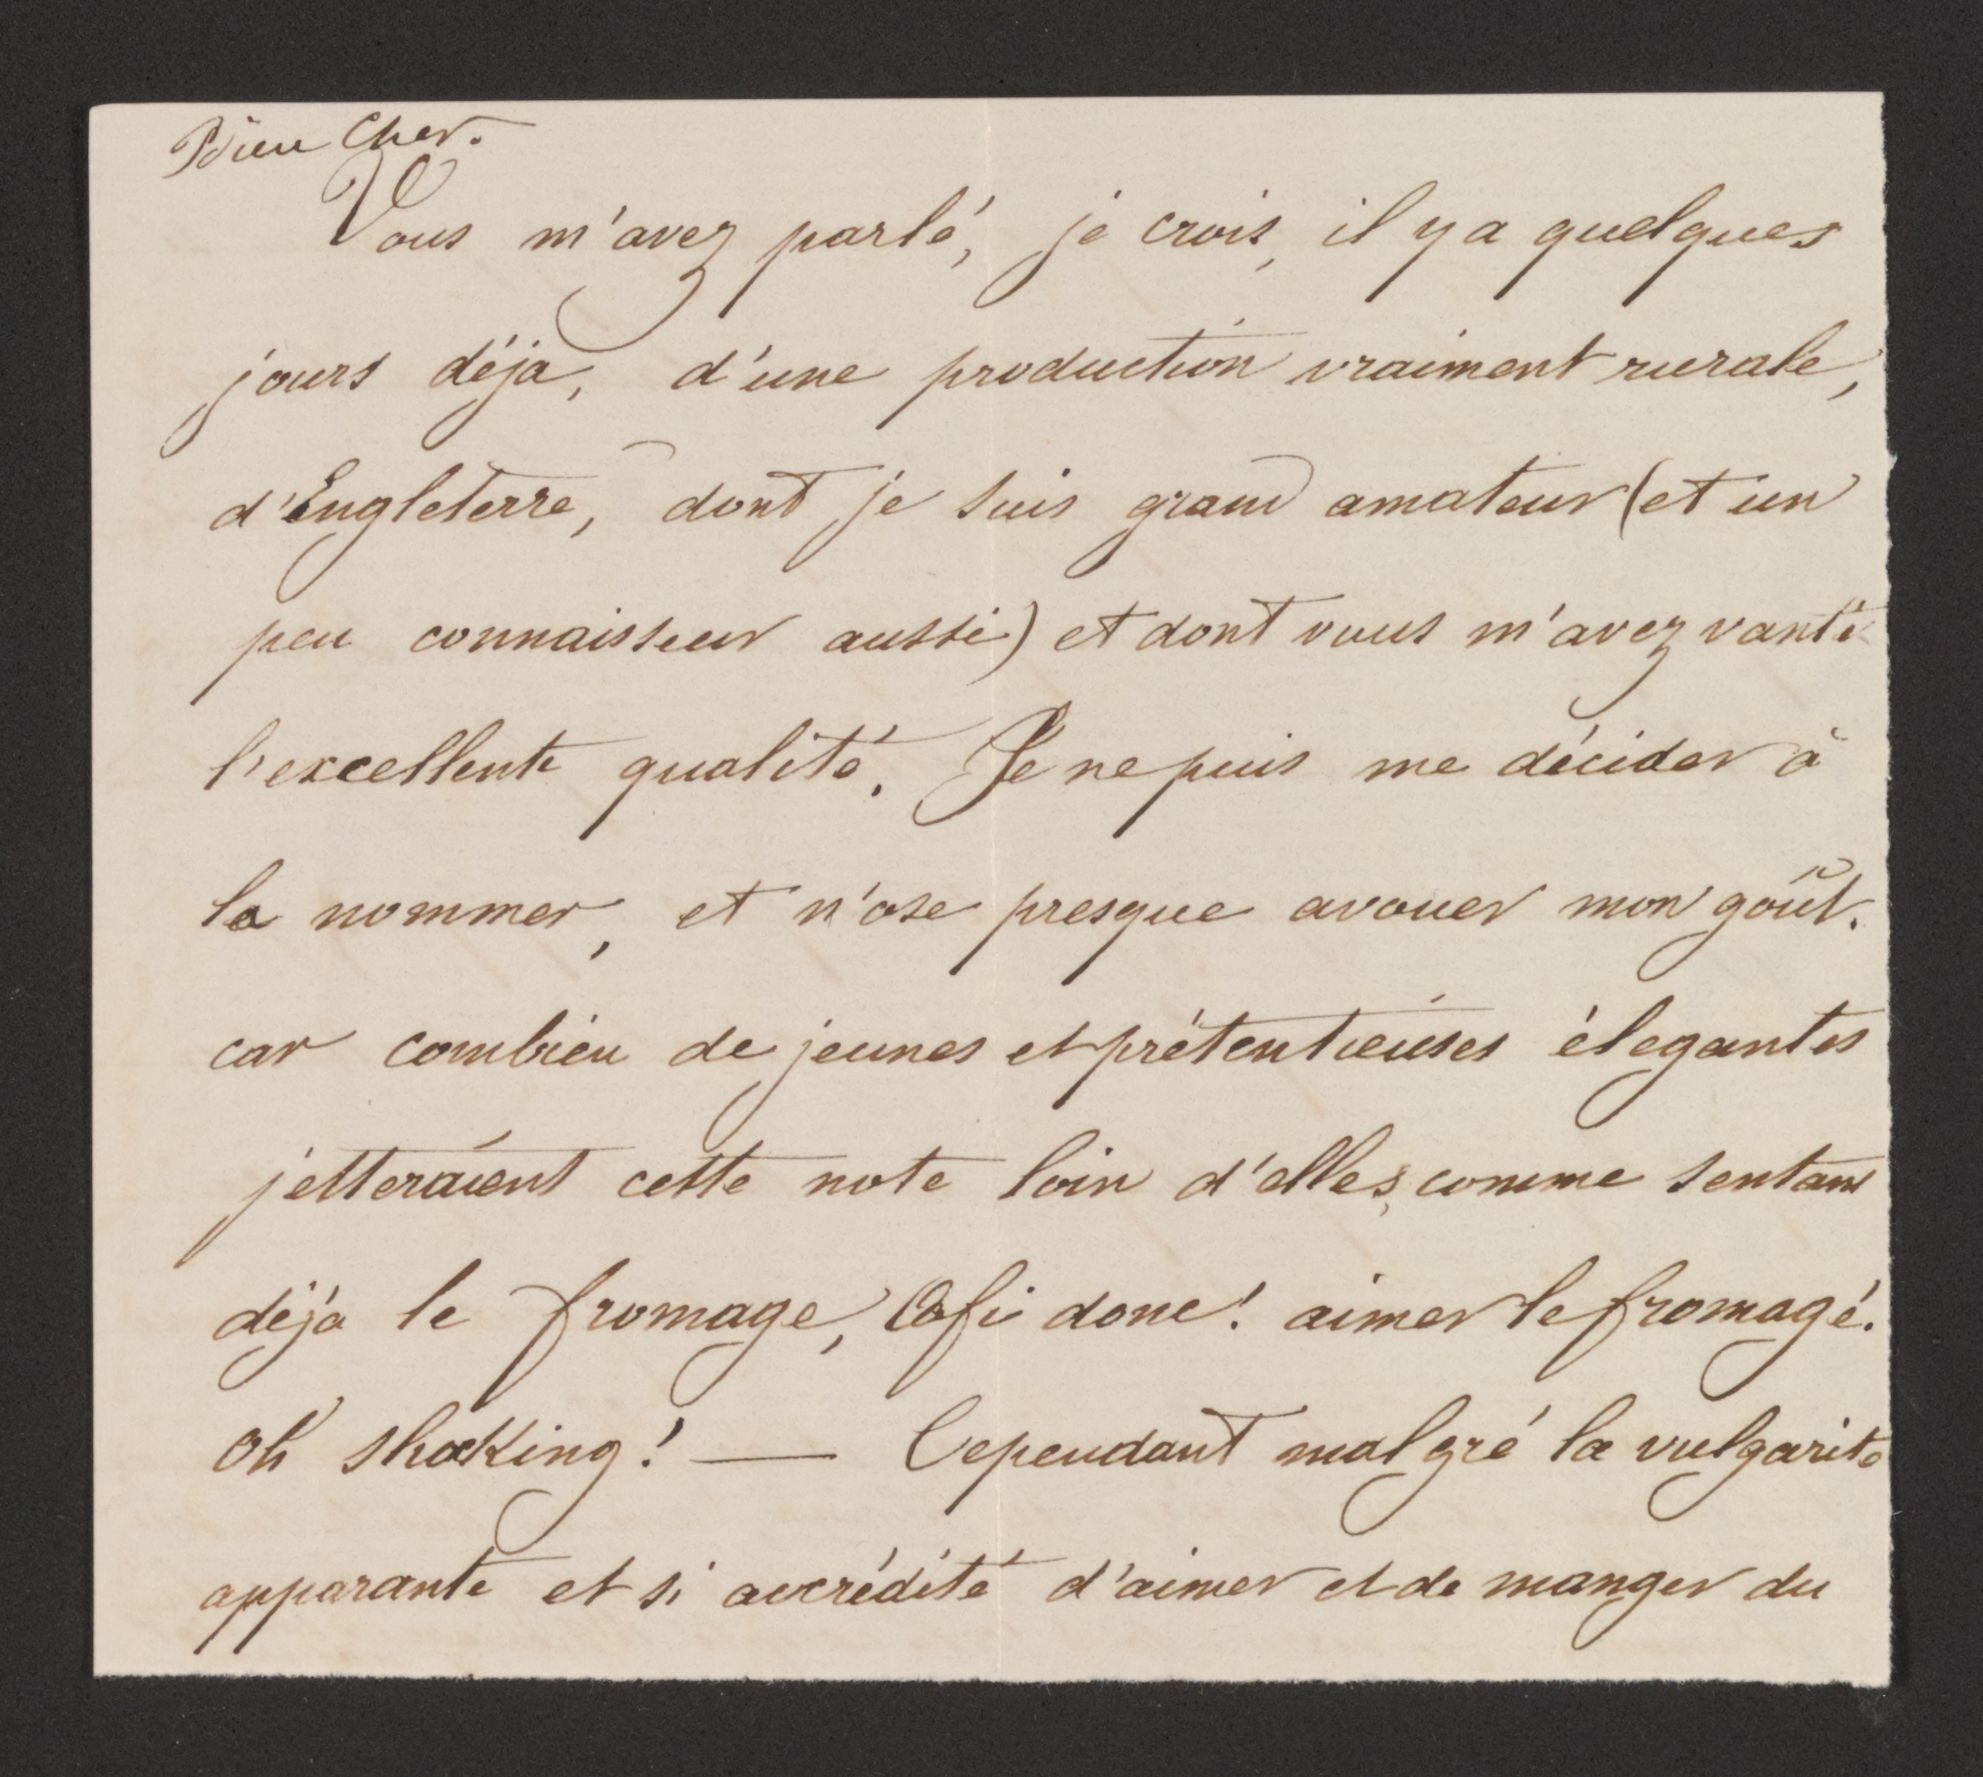 Bien Cher.
Vous m'avez parlé, je crois, il y a quelques
jours déja, d'une production vraiment rurale,
d'Engleterre, dont je suis grand amateur (et un
peu connaisseur aussi) et dont vous m'avez vanté
l'excellente qualité. Je ne puis me décider à
la nommer, et n'ose presque avouer mon goût.
car combien de jeunes et prétentieuses élegantes
jetteraient cette note loin d'elles, comme sentant
déja le fromage, fi donc! aimer le fromage.
Oh shoking! — Cependant malgré la vulgarité
apparante et si accrédité d'aimer et de manger du